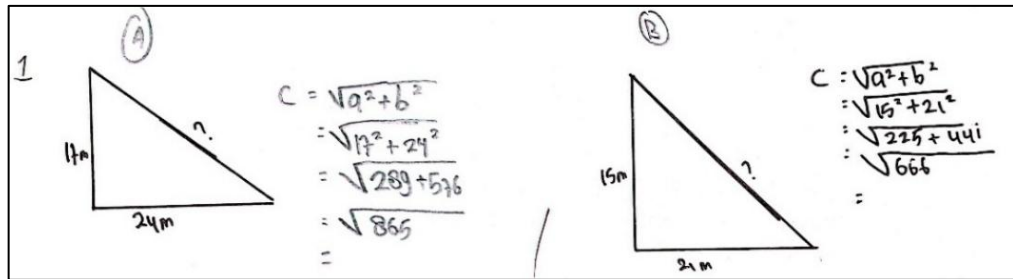 1
A
17m
?
24m
C = √a²+b²
= √17²+24²
= √289+576
= √865
=
B
15m
?
21m
C = √a²+b²
= √15²+21²
= √225+441
= √666
=